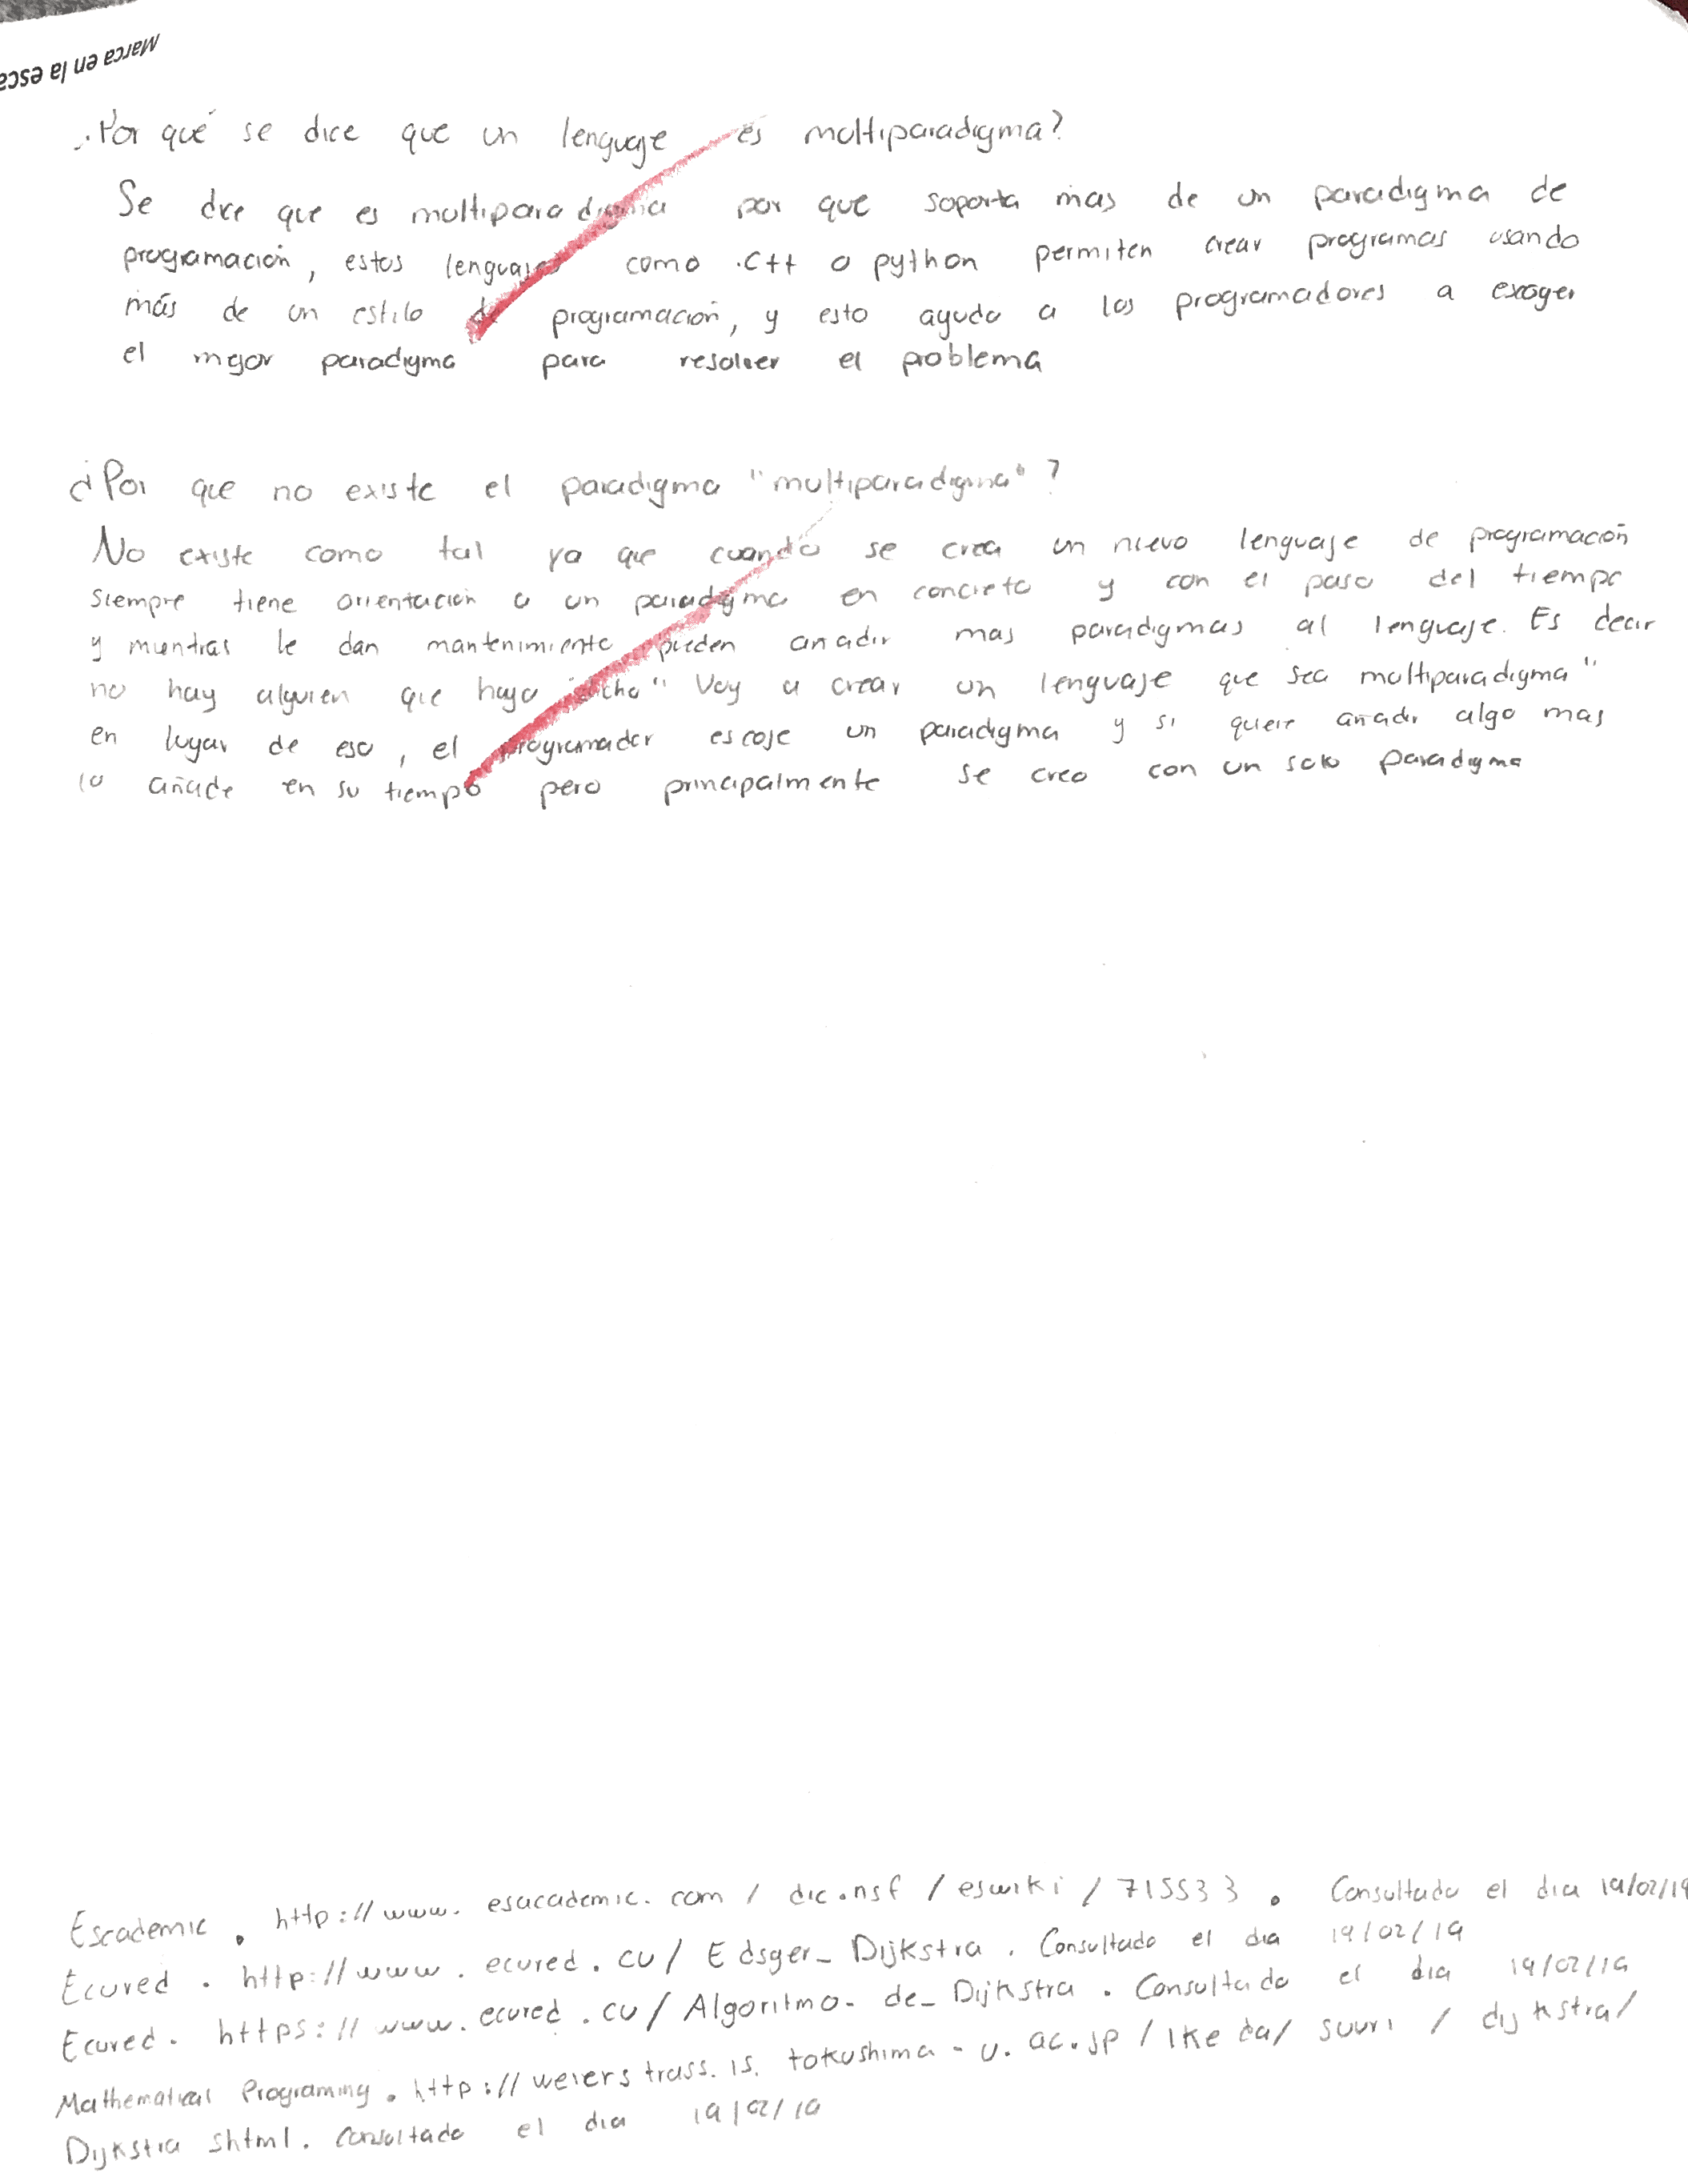 Marca en la esca
¿Por qué se dice que un lenguaje es multiparadigma?
Se dice que es multiparadigma por que soporta mas de un paradigma de
programación, estos lenguajes como C++ o python permiten crear programas usando
más de un estilo de programación, y esto ayuda a los programadores a exoger
el mejor paradigma para resolver el problema
¿Por que no existe el paradigma "multiparadigma"?
No existe como tal ya que cuando se crea un nuevo lenguaje de programación
siempre tiene orientación a un paradigma en concreto y con el paso del tiempo
y mientras le dan mantenimiento pueden añadir mas paradigmas al lenguaje. Es decir
no hay alguien que haya dicho "Voy a crear un lenguaje que sea multiparadigma"
en lugar de eso, el programador escoje un paradigma y si quiere añadir algo mas
lo añade en su tiempo pero principalmente se creo con un solo paradigma
Escademic. http://www.esacademic.com/dic.nsf/eswiki/715533. Consultado el dia 19/02/19
Ecured. http://www.ecured.cu/Edsger_Dijkstra. Consultado el dia 19/02/19
Ecured. https://www.ecured.cu/Algoritmo_de_Dijkstra. Consultado el dia 19/02/19
Mathematical Programing. http://weierstrass.is.tokushima-u.ac.jp/ikeda/suuri/dijkstra/
Dijkstra shtml. Consultado el dia 19/02/19